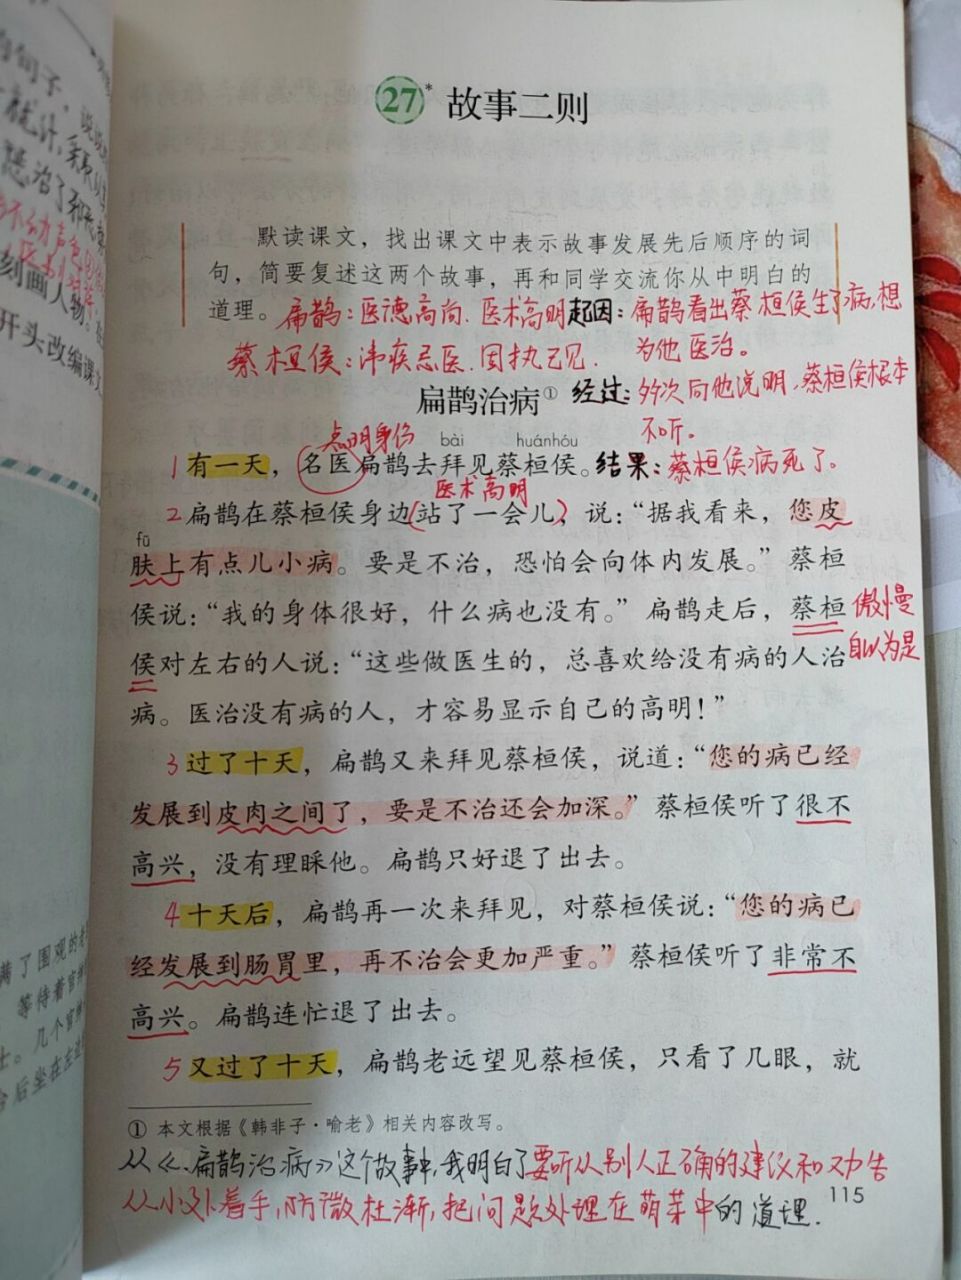 27* 故事二则
默读课文，找出课文中表示故事发展先后顺序的词
句，简要复述这两个故事，再和同学交流你从中明白的
道理。
扁鹊：医德高尚．医术高明
蔡桓侯：讳疾忌医．固执己见．
起因：扁鹊看出蔡桓侯生了病，想
为他医治。
扁鹊治病①
经过：多次向他说明，蔡桓侯根本
不听。
点明身份
bài huánhóu
1 有一天，名医扁鹊去拜见蔡桓侯。
结果：蔡桓侯病死了。
医术高明
2 扁鹊在蔡桓侯身边（站了一会儿），说：“据我看来，您皮
fū
肤上有点儿小病。要是不治，恐怕会向体内发展。”蔡桓
侯说：“我的身体很好，什么病也没有。”扁鹊走后，蔡桓
傲慢
自以为是
侯对左右的人说：“这些做医生的，总喜欢给没有病的人治
病。医治没有病的人，才容易显示自己的高明！”
3 过了十天，扁鹊又来拜见蔡桓侯，说道：“您的病已经
发展到皮肉之间了，要是不治还会加深。”蔡桓侯听了很不
高兴，没有理睬他。扁鹊只好退了出去。
4 十天后，扁鹊再一次来拜见，对蔡桓侯说：“您的病已
经发展到肠胃里，再不治会更加严重。”蔡桓侯听了非常不
高兴。扁鹊连忙退了出去。
5 又过了十天，扁鹊老远望见蔡桓侯，只看了几眼，就
① 本文根据《韩非子·喻老》相关内容改写。
从《扁鹊治病》这个故事中，我明白了要听从别人正确的建议和劝告
从小处着手，防微杜渐，把问题处理在萌芽中的道理．
115
句子．
就计，
惩治了邪恶
不动声色
刻画人物。
开头改编课文
满了围观的老
等待着官
士。几个官
会后坐在左